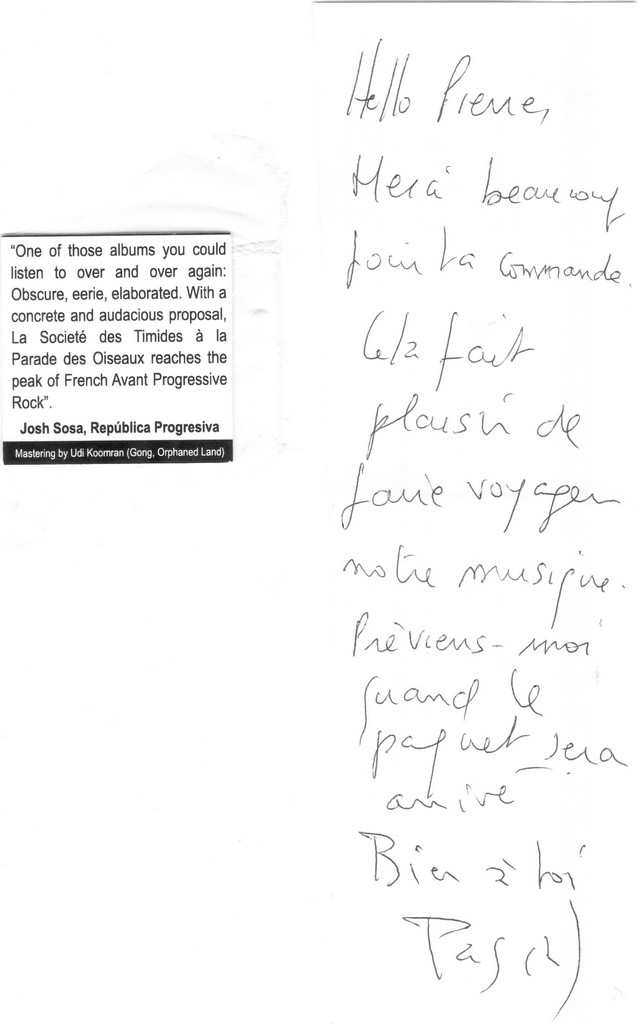 "One of those albums you could
listen to over and over again:
Obscure, eerie, elaborated. With a
concrete and audacious proposal,
La Societé des Timides à la
Parade des Oiseaux reaches the
peak of French Avant Progressive
Rock".
Josh Sosa, República Progresiva
Mastering by Udi Koomran (Gong, Orphaned Land)
Hello Pierre,
Merci beaucoup
pour ta commande.
Cela fait
plaisir de
faire voyager
notre musique.
Préviens-moi
quand le
paquet sera
arrivé
Bien à toi
Pascal